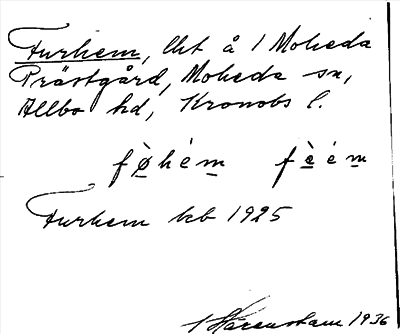 Furhem, lht å 1 Moheda
Prästgård, Moheda sn,
Allbo hd, Kronobs l.
fø̀hém fèém
Furhem kb 1925
Härenstam 1936